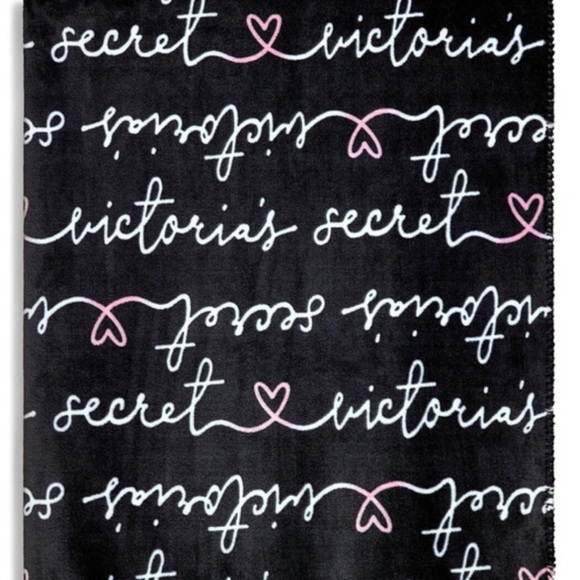 secret victoria's
victoria's secret
victoria's secret
victoria's secret
secret victoria's
victoria's secret